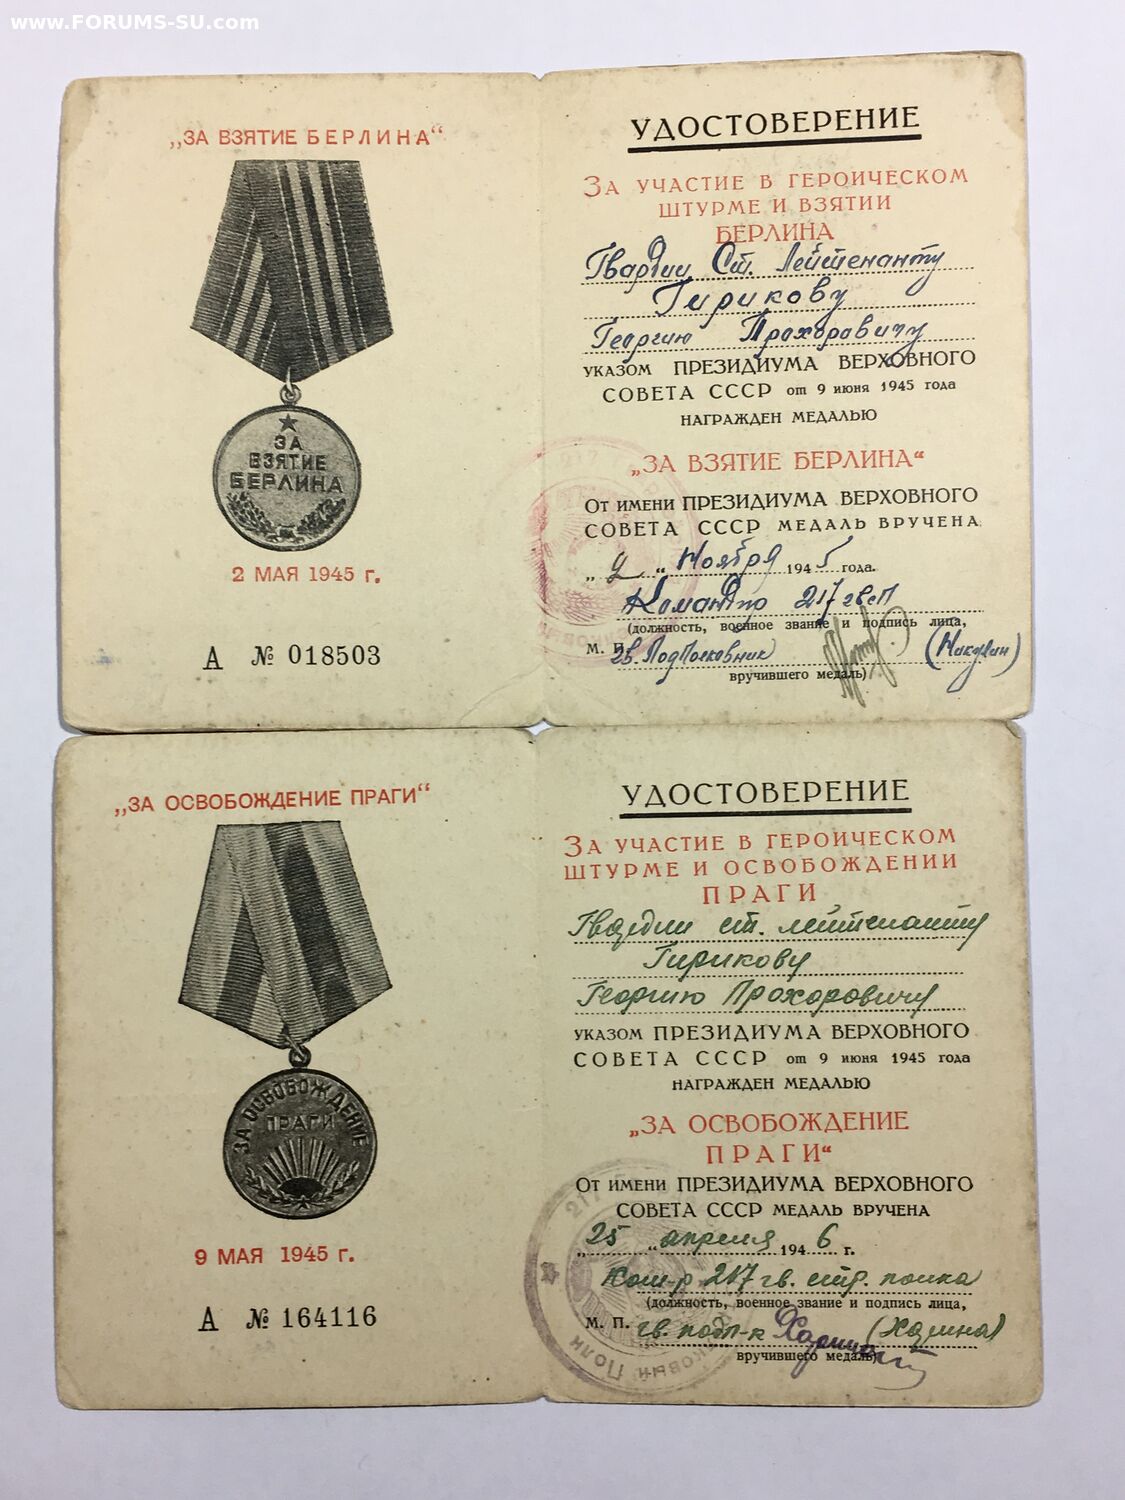 www.FORUMS-SU.com
„ЗА ВЗЯТИЕ БЕРЛИНА“
ЗА
ВЗЯТИЕ
БЕРЛИНА
2 МАЯ 1945 г.
А № 018503
УДОСТОВЕРЕНИЕ
ЗА УЧАСТИЕ В ГЕРОИЧЕСКОМ
ШТУРМЕ И ВЗЯТИИ
БЕРЛИНА
Гвардии Ст. Лейтенанту
Гирикову
Георгию Прохоравичу
УКАЗОМ ПРЕЗИДИУМА ВЕРХОВНОГО
СОВЕТА СССР от 9 июня 1945 года
НАГРАЖДЕН МЕДАЛЬЮ
„ЗА ВЗЯТИЕ БЕРЛИНА“
ОТ ИМЕНИ ПРЕЗИДИУМА ВЕРХОВНОГО
СОВЕТА СССР МЕДАЛЬ ВРУЧЕНА
„2“ Ноября 1945 года.
Командир 217 гвсп
(должность, военное звание и подпись лица,
М. П. гв. Подполковник
вручившего медаль)
„ЗА ОСВОБОЖДЕНИЕ ПРАГИ“
ЗА ОСВОБОЖДЕНИЕ
ПРАГИ
9 МАЯ 1945 г.
А № 164116
УДОСТОВЕРЕНИЕ
ЗА УЧАСТИЕ В ГЕРОИЧЕСКОМ
ШТУРМЕ И ОСВОБОЖДЕНИИ
ПРАГИ
Гвардии ст. лейтенанту
Гирикову
Георгию Прохоровичу
УКАЗОМ ПРЕЗИДИУМА ВЕРХОВНОГО
СОВЕТА СССР от 9 июня 1945 года
НАГРАЖДЕН МЕДАЛЬЮ
„ЗА ОСВОБОЖДЕНИЕ
ПРАГИ“
ОТ ИМЕНИ ПРЕЗИДИУМА ВЕРХОВНОГО
СОВЕТА СССР МЕДАЛЬ ВРУЧЕНА
„25“ апреля 1946 г.
Ком-р 217 гв. стр. полка
(должность, военное звание и подпись лица,
М. П. гв. подп-к
вручившего медаль)